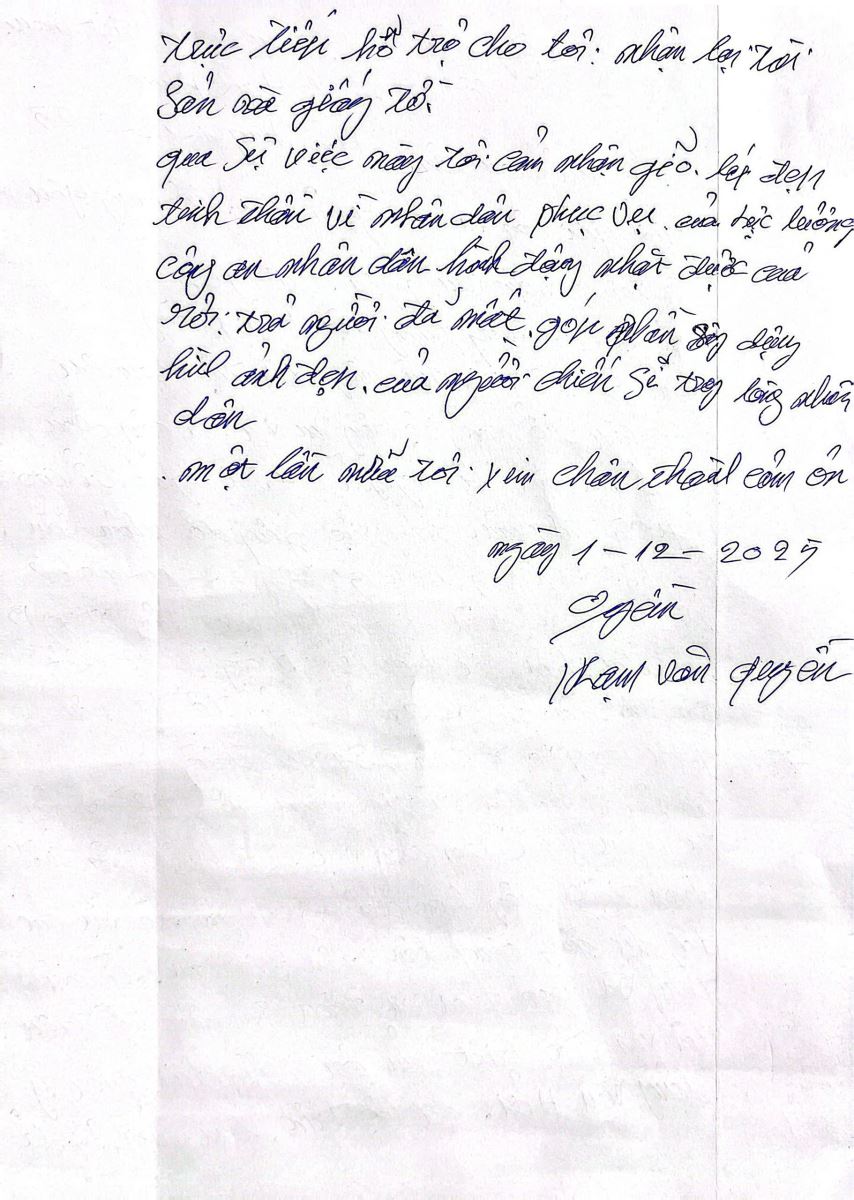 trực tiếp hỗ trợ cho tôi nhận lại tài
sản và giấy tờ.
qua sự việc này tôi cảm nhận đẹp
tinh thần vì nhân dân phục vụ của lực lượng
công an nhân dân hành động nhặt được của
rơi trả người đã mất góp phần xây dựng
hình ảnh đẹp của người chiến sĩ trong lòng nhân
dân
một lần nữa tôi xin chân thành cảm ơn
ngày 1-12-2025
Quyền
Phạm văn quyền